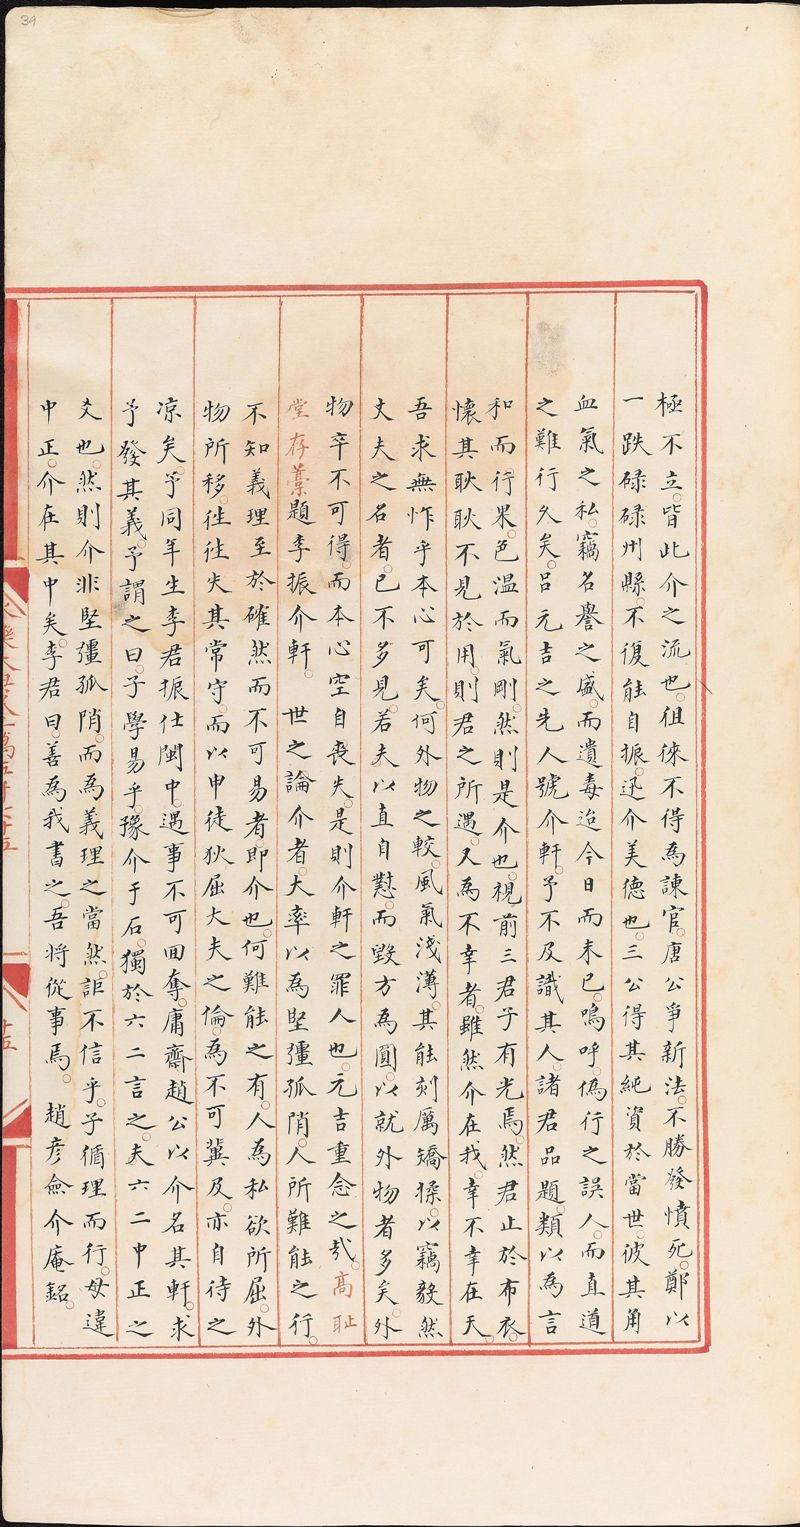 極不立。皆此介之流也。徂徠不得為諫官。唐公爭新法。不勝發憤死。鄭以
一跌碌碌州縣。不復能自振。迅介美德也。三公得其純資於當世。彼其角
血氣之私。竊名譽之盛。而遺毒迨今日而未已。嗚呼。偽行之誤人。而直道
之難行久矣。呂元吉之先人號介軒。予不及識其人。諸君品題。類以為言
和而行果。色溫而氣剛。然則是介也。視前三君子有光焉。然君止於布衣。
懷其耿耿不見於用。則君之所遇。又為不幸者。雖然介在我。幸不幸在天。
吾求無怍乎本心可矣。何外物之較。風氣淺薄。其能刻厲矯揉。以竊毅然
丈夫之名者。已不多見。若夫以直自懟。而毀方為圓。以就外物者多矣。外
物卒不可得。而本心空自喪失。是則介軒之罪人也。元吉重念之哉。高恥
堂存藁題李振介軒。 世之論介者。大率以為堅彊孤陗。人所難能之行。
不知義理至於確然而不可易者。即介也。何難能之有。人為私欲所屈。外
物所移。往往失其常守。而以申徒狄屈大夫之倫。為不可冀及。亦自待之
凉矣。予同年生李君振仕閩中。遇事不可回奪。庸齋趙公以介名其軒。求
予發其義。予謂之曰。子學易乎。豫介于石。獨於六二言之。夫六二中正之
爻也。然則介非堅彊孤陗。而為義理之當然。詎不信乎。子循理而行。毋違
中正。介在其中矣。李君曰。善為我書之。吾將從事焉。 趙彥僉介庵銘。
永樂大典卷一萬五千七十五
廿五
39